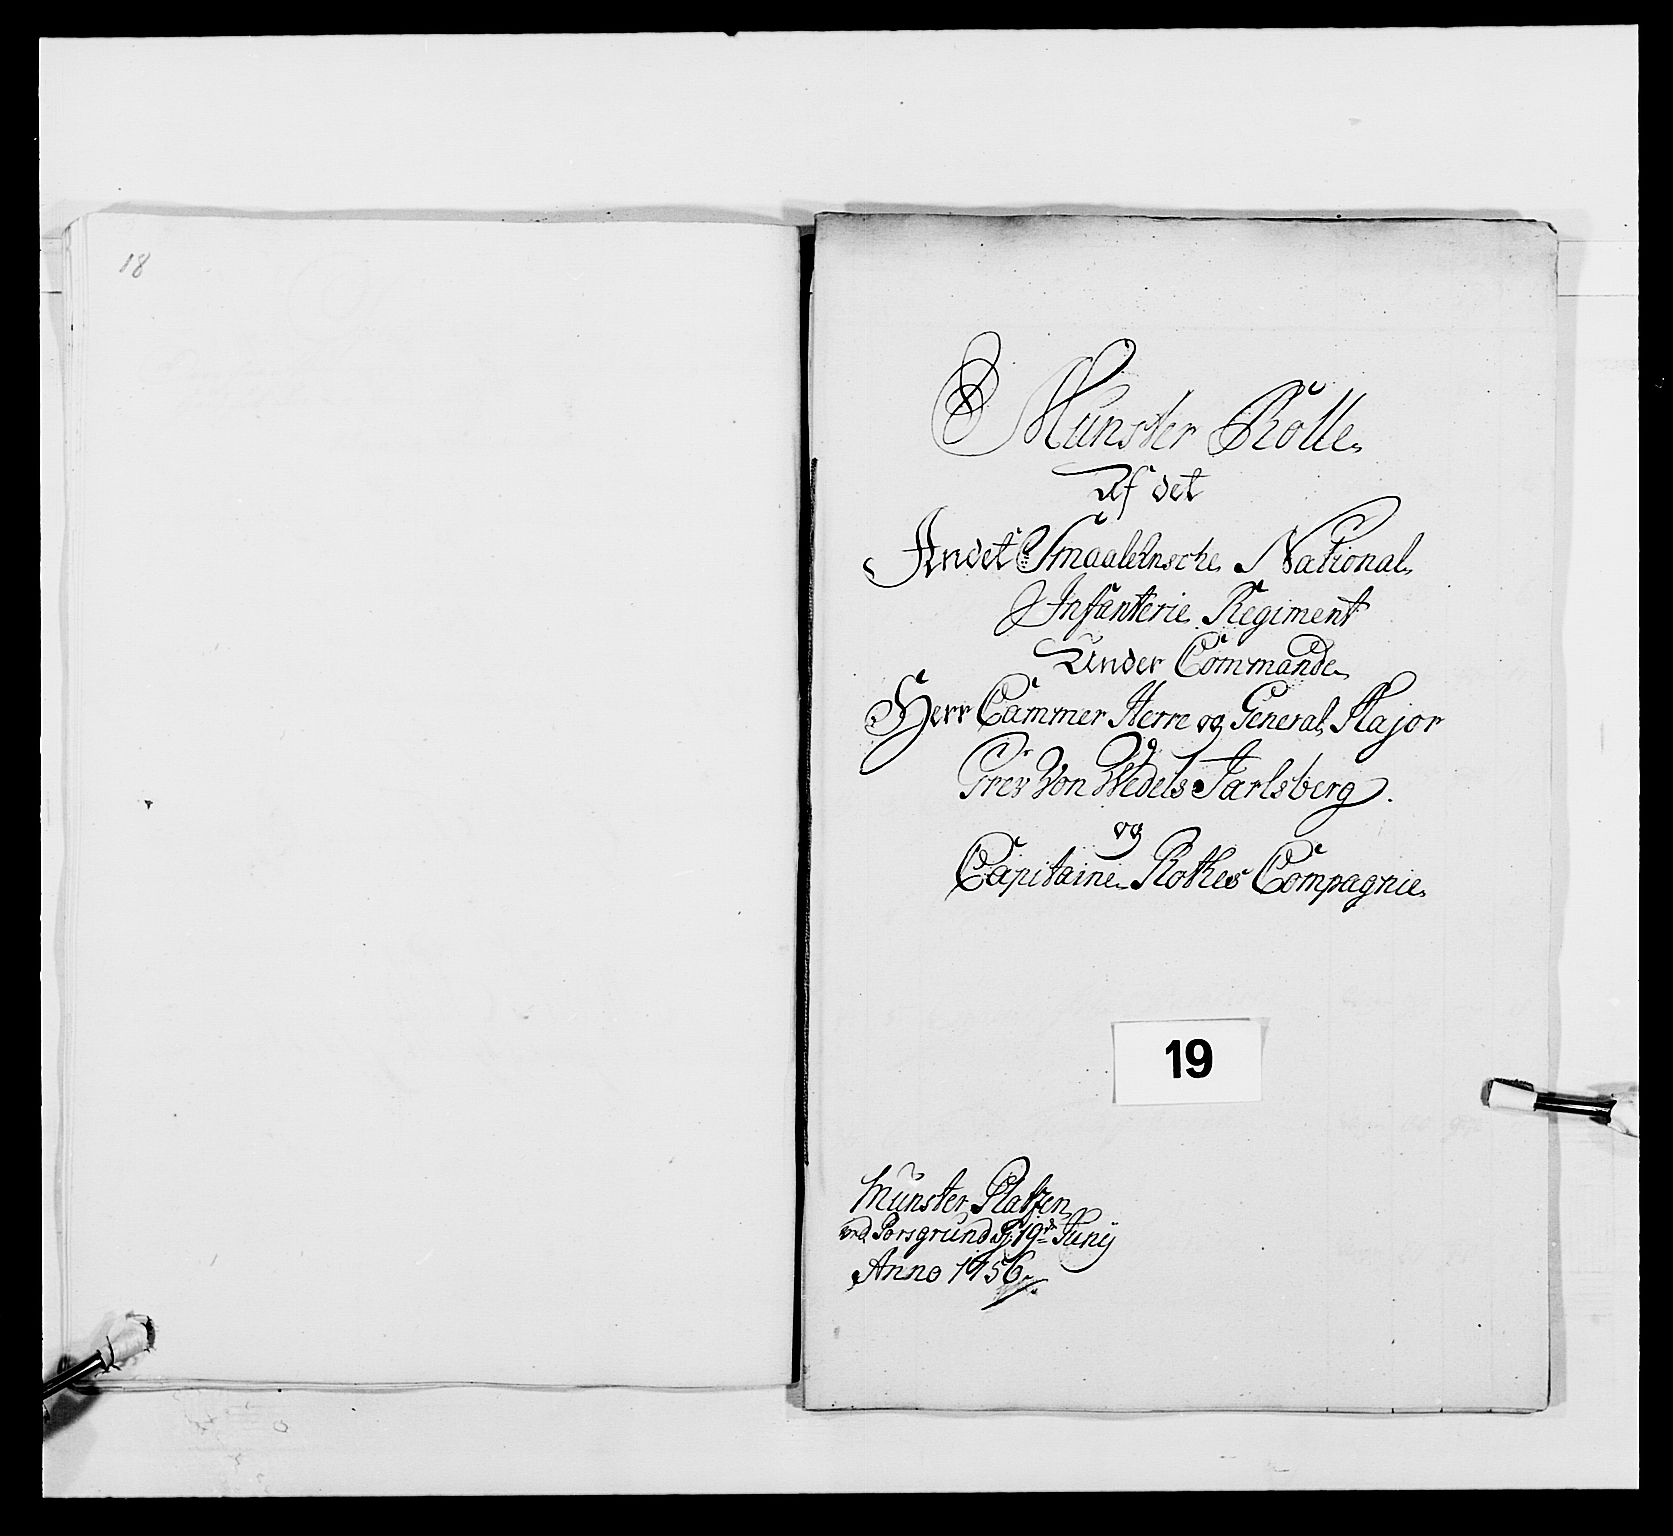 18
Munster Rolle
Af det
Andet Smaalehnsche National
Infanterie Regiment
Under Commande
Herr Cammer Herre og General Major
Grev Von Wedels Jarlsberg.
og
Capitaine Rothes Compagnie
19
Munster Platzen
ved Porsgrund d. 19de Junij
Anno 1756